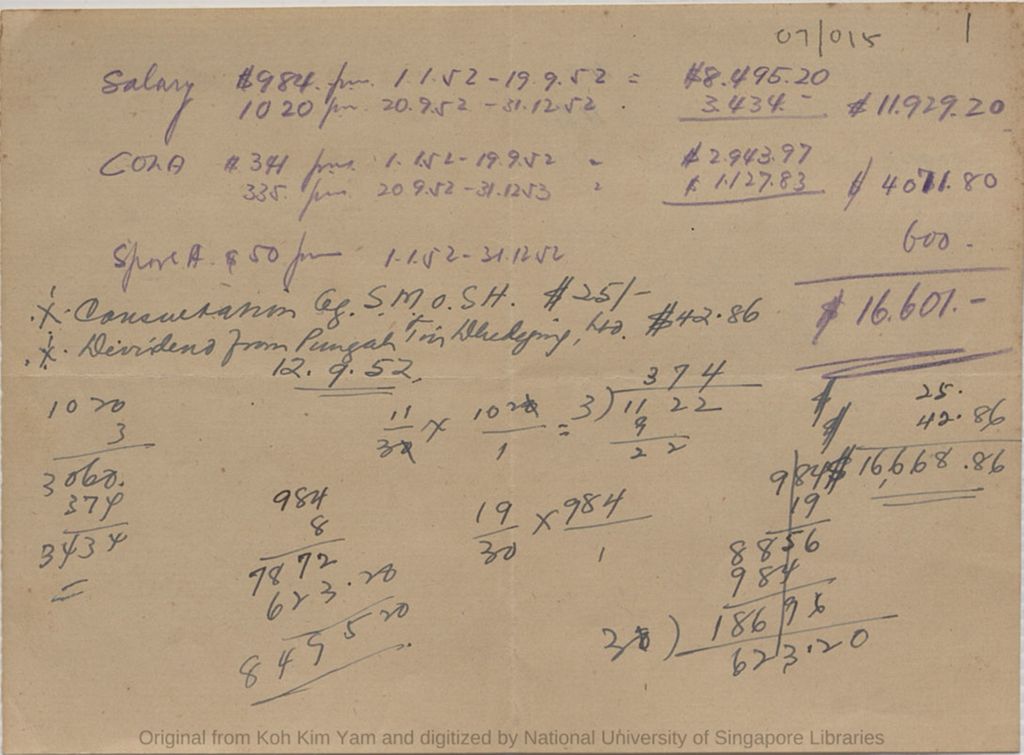 07/015 1
Salary $984. pm. 1.1.52 - 19.9.52 = $8.495.20
1020 pm. 20.9.52 - 31.12.52 . 3.434.- $11.929.20
COLA $341 pm. 1.1.52 - 19.9.52 = $2.943.97
335. pm 20.9.52 - 31.12.53 = $1.127.83 $4071.80
600.-
S'pore A. $50 pm 1.1.52 - 31.12.52
$16.601.-
X. Consultation Ag. S.M.O. S.H. $25/-
X. Dividend from Pungah Tin Dredging, Ltd. $42.86
12.9.52.
$ 25.
$ 42.86
$16,668.86
1020
3
3060.
374
3434
11/30 x 1020/1 =
374
3) 1122
9
22
984
8
7872
623.20
8495 20
19/30 x 984/1
984
19
8856
984
30) 18696
623.20
Original from Koh Kim Yam and digitized by National University of Singapore Libraries